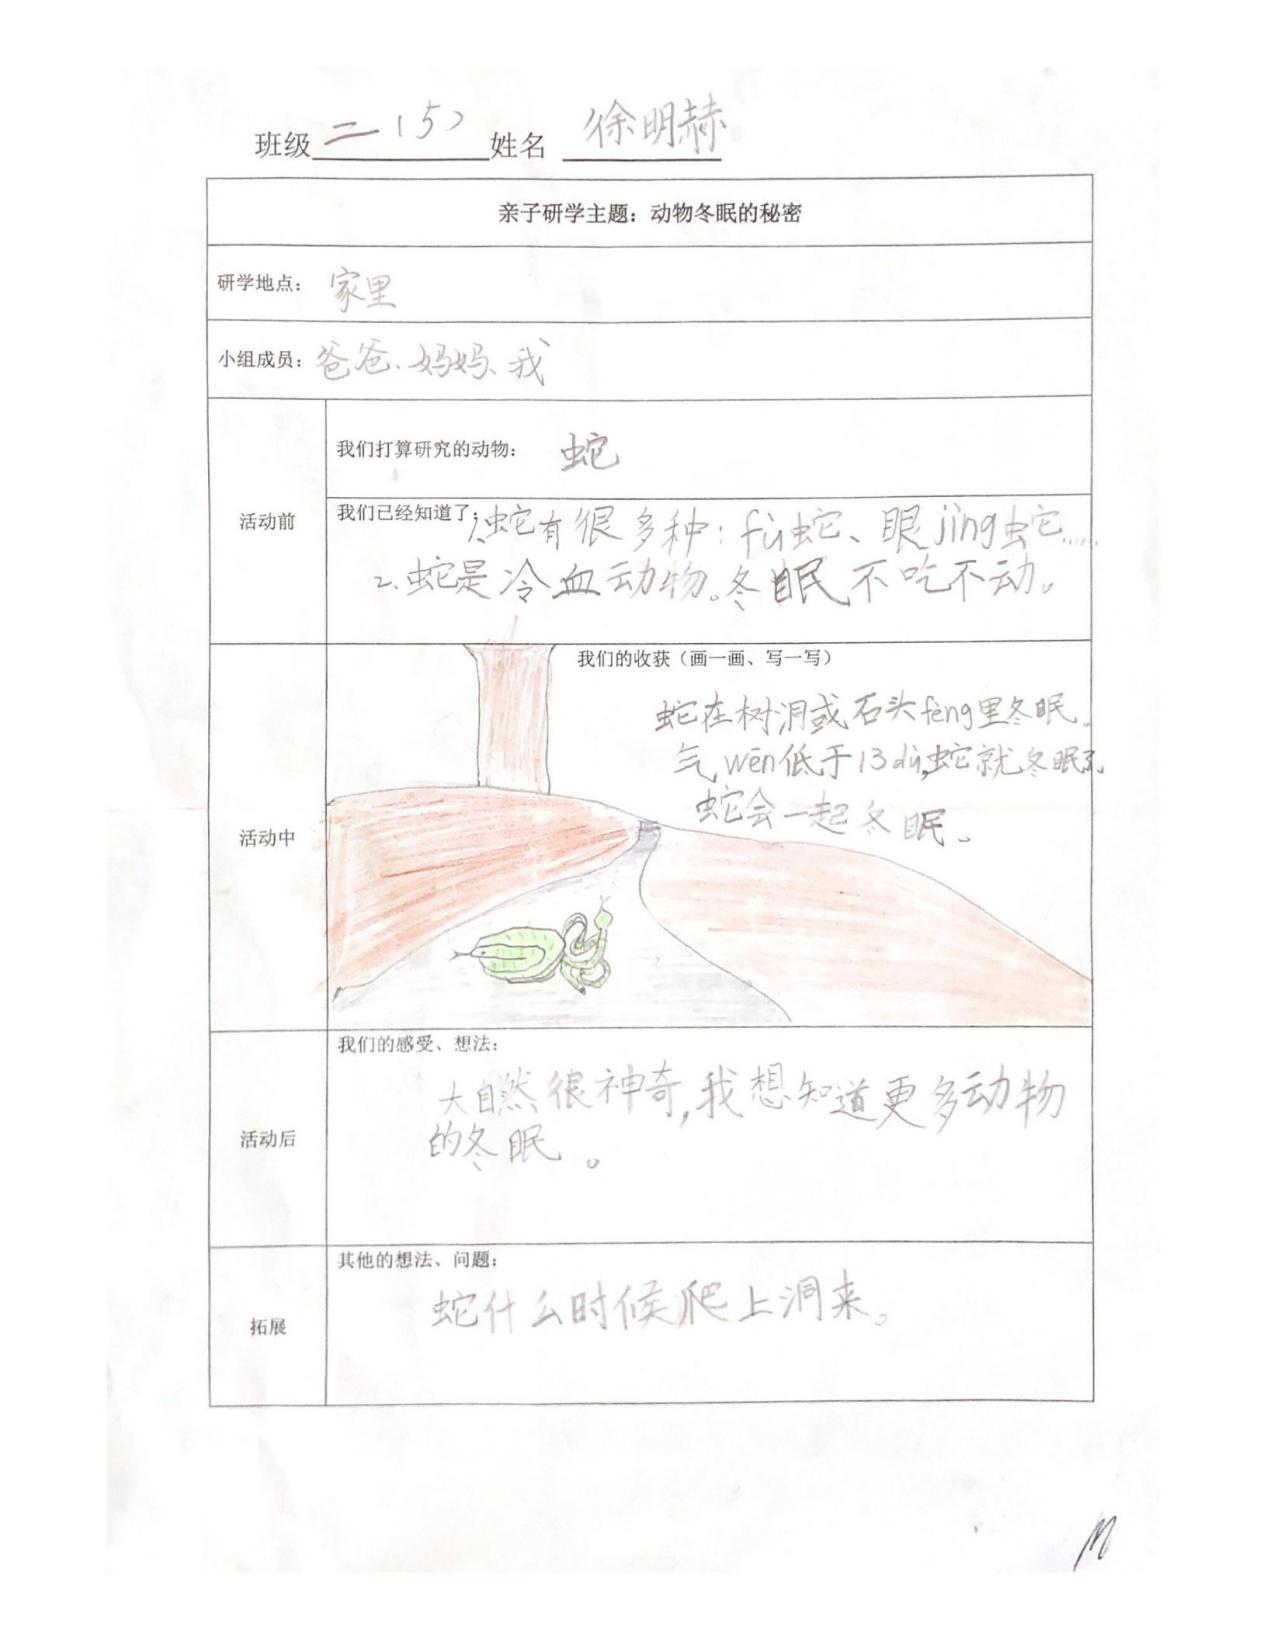 班级 二(5) 姓名 徐明赫
亲子研学主题：动物冬眠的秘密
研学地点：家里
小组成员：爸爸、妈妈、我
活动前
我们打算研究的动物：蛇
我们已经知道了：1.蛇有很多种：fù蛇、眼jìng蛇……
2.蛇是冷血动物。冬眠不吃不动。
活动中
我们的收获（画一画、写一写）
蛇在树洞或石头fèng里冬眠。
气wēn低于13dù,蛇就冬眠了。
蛇会一起冬眠。
活动后
我们的感受、想法：
大自然很神奇,我想知道更多动物
的冬眠。
拓展
其他的想法、问题：
蛇什么时候爬上洞来。